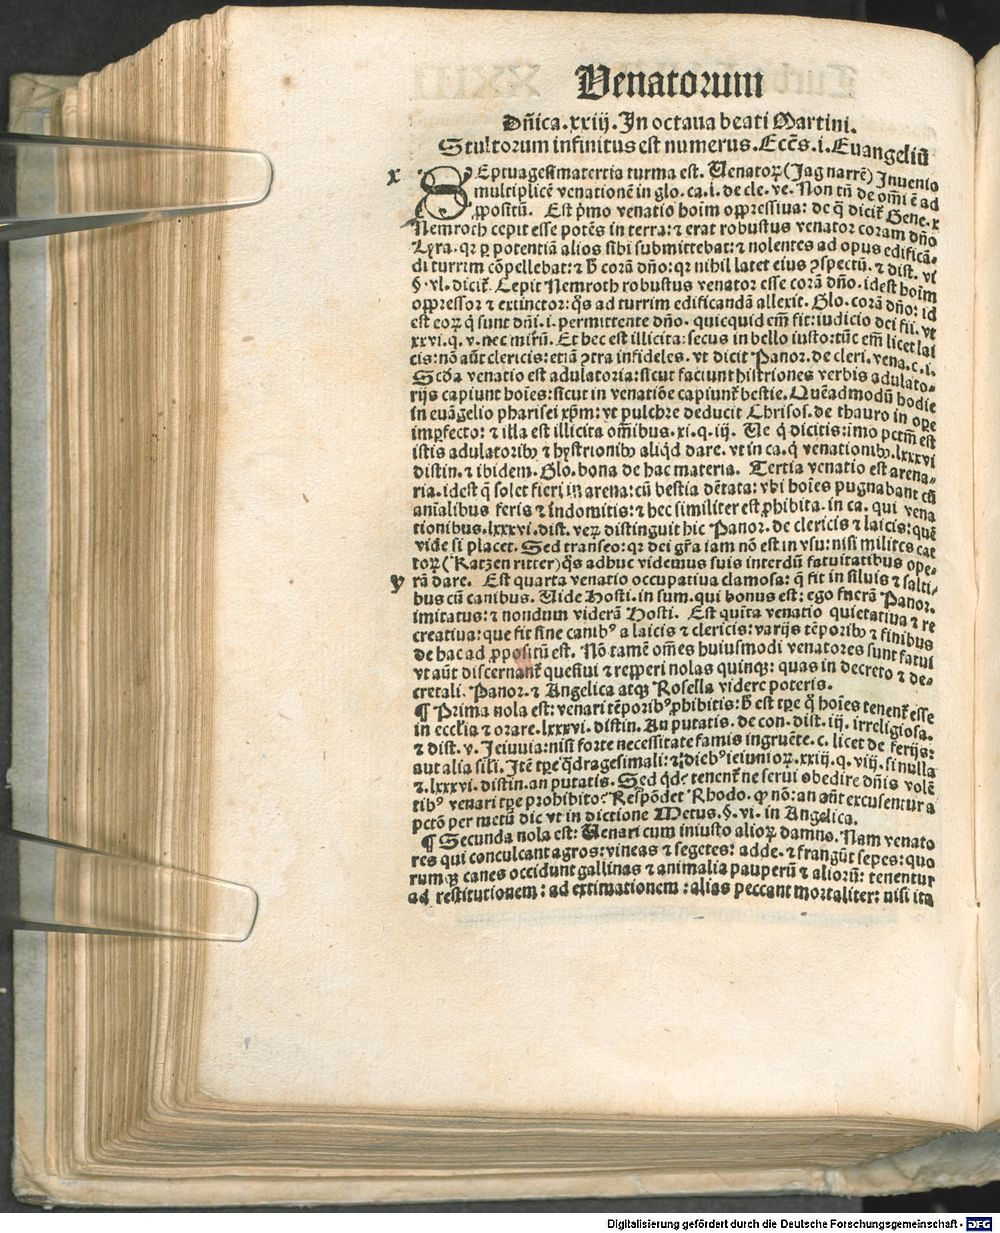 Venatorum
Dñica.xxiij.In octaua beati Martini.
Stultorum infinitus est numerus.Eccĕs.i.Euangeliũ
x SEptuagesimatertia turma est. Venatoꝝ(Jag narrẽ) Inuenio
multiplicẽ venationẽ in glo.ca.i.de cle.ve.Non tñ de om̃i ẽ ad
ꝓpositũ. Est pͥmo venatio hoim oppressiua: de q̃ dicit᷑ Gene.x
Nemroth cepit esse potẽs in terra:⁊ erat robustus venator coram dño
Lyra.qꝛ ꝑ potentiã alios sibi submittebat:⁊ nolentes ad opus edificã-
di turrim cõpellebat:⁊ h̃ corã dño:qꝛ nihil latet eius ꝯspectũ.⁊ dist.vi
§.vl.dicit᷑. Cepit Nemroth robustus venator esse corã dño.idest hoim
oppressor ⁊ extinctor:q̃s ad turrim edificandã allexit. Glo.corã dño: id
est eoꝝ q̃ sunt dñi.i.permittente dño.quicquid em̃ fit:iudicio dei fit.vt
xxvi.q.v.nec mirũ. Et hec est illicita:secus in bello iusto:tũc em̃ licet lai
cis:nõ aũt clericis:etiã ꝯtra infideles.vt dicit Panor.de cleri.vena.c.i.
Scđa venatio est adulatoria:sicut faciunt histriones verbis adulato-
rijs capiunt hoĩes:sicut in venatiõe capiunt᷑ bestie.Quẽadmodũ hodie
in euãgelio pharisei xp̃m:vt pulchre deducit Chrisos.de thauro in ope
imꝑfecto:⁊ illa est illicita om̃ibus.xi.q.iij. Ve q̃ dicitis:imo pctm̃ est
istis adulatoribꝫ ⁊ hystrionibꝫ aliqͥd dare.vt in ca.q̃ venationibꝫ.lxxxvi
distin.⁊ ibidem.Glo.bona de hac materia. Tertia venatio est arena-
ria.idest q̃ solet fieri in arena:cũ bestia dẽtata:vbi hoĩes pugnabant cũ
aĩalibus feris ⁊ indomitis:⁊ hec similiter est ꝓhibita.in ca. qui vena
tionibus.lxxxvi.dist. veꝝ distinguit hic Panor.de clericis ⁊ laicis:quẽ
vide si placet.Sed transeo:qꝛ dei gr̃a iam nõ est in vsu:nisi milites cat
toꝝ(Katzen ritter)q̃s adhuc videmus suis interdũ fatuitatibus ope-
y rã dare. Est quarta venatio occupatiua clamosa: q̃ fit in siluis ⁊ salti-
bus cũ canibus. Vide Hosti.in sum.qui bonus est: ego fuerã Panor.
imitatus:⁊ nondum viderã Hosti. Est quĩta venatio quietatiua ⁊ re
creatiua:que fit sine canibꝰ a laicis ⁊ clericis:varijs tẽporibꝫ ⁊ finibus
de hac ad ꝓpositũ est. Nõ tamẽ om̃es huiusmodi venatores sunt fatui
vt aũt discernant᷑ quesiui ⁊ repperi nolas quinqꝫ: quas in decreto ⁊ de-
cretali. Panor.⁊ Angelica atqꝫ Rosella videre poteris.
¶ Prima nola est: venari tẽporibꝰ ꝓhibitis:h̃ est tꝑe q̃ hoĩes tenent᷑ esse
in ecclĩa ⁊ orare.lxxxvi.distin.An putatis.de con.dist.iij. irreligiosa.
⁊ dist.v.Jeiuuia:nisi forte necessitate famis ingruẽte.c. licet de ferijs:
aut alia sil̃i. Itẽ tꝑe q̃dragesimali:⁊ diebꝰ ieiunioꝝ.xxiij.q.viij.si nulla
⁊.lxxxvi.distin.an putatis. Sed qͥd: tenent᷑ne serui obedire dñis volẽ
tibꝰ venari tꝑe prohibito? Respõdet Rhodo. ꝙ nõ:an aũt excusentur a
pctõ per metũ dic vt in dictione Metus.§.vi. in Angelica.
¶ Secunda nola est: Venari cum iniusto alioꝝ damno. Nam venato
res qui conculcant agros:vineas ⁊ segetes: adde.⁊ frangũt sepes:quo
rumqꝫ canes occidunt gallinas ⁊ animalia pauperũ ⁊ aliorũ: tenentur
ad restitutionem: ad extimationem :alias peccant mortaliter: nisi ita
Digitalisierung gefördert durch die Deutsche Forschungsgemeinschaft - DFG